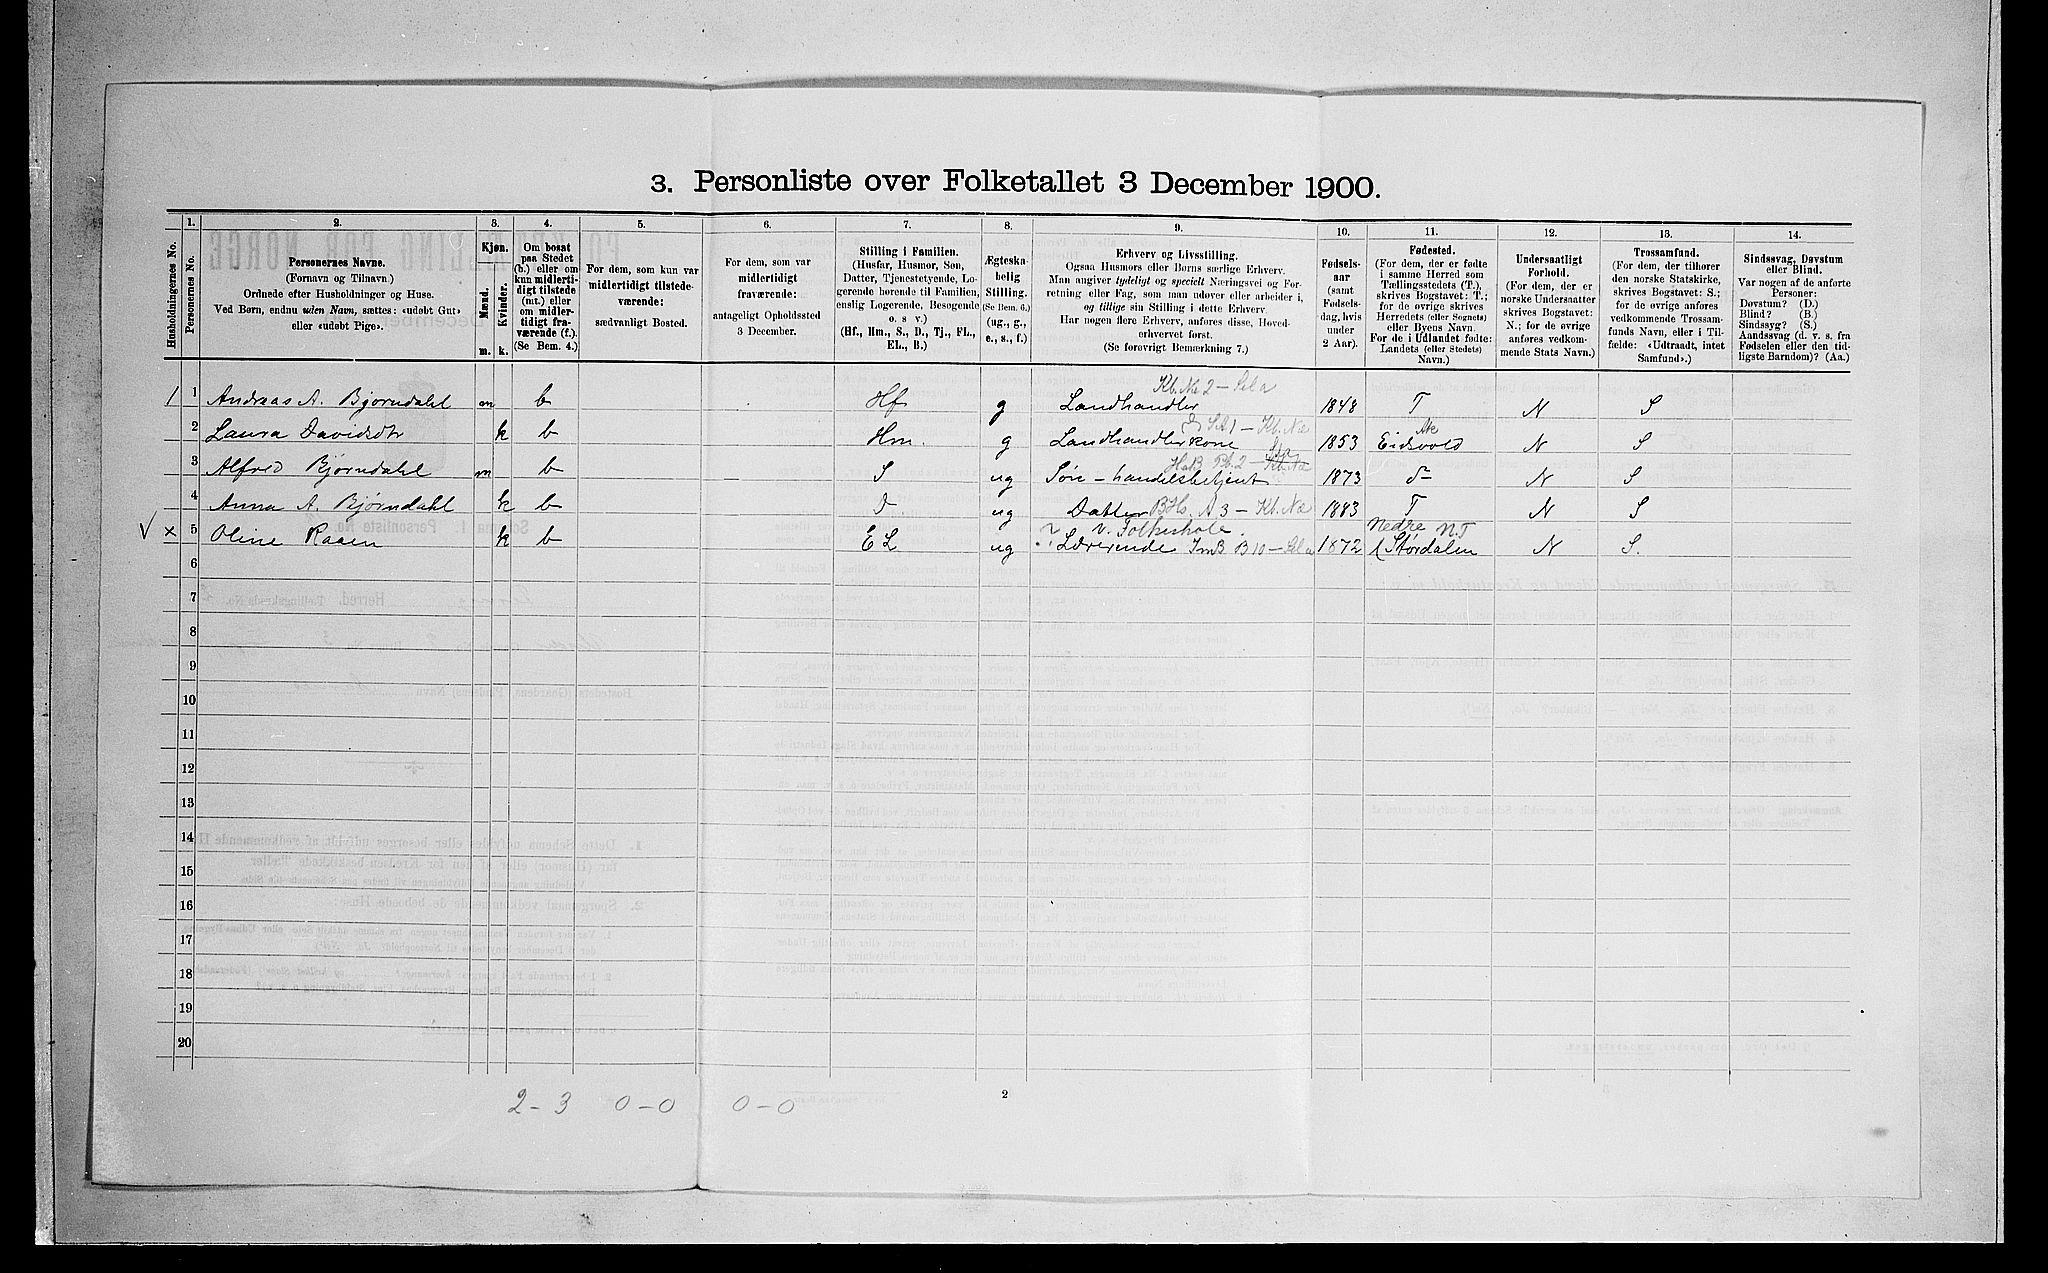 3. Personliste over Folketallet 3 December 1900.
Husholdningernes No.
1.
Personernes No.
2.
Personernes Navne.
(Fornavn og Tilnavn.)
Ordnede efter Husholdninger og Huse.
Ved Børn, endnu uden Navn, sættes: «udøbt Gut»
eller «udøbt Pige».
3.
Kjøn.
Mænd.
Kvinder.
m. k.
4.
Om bosat
paa Stedet
(b.) eller om
kun midlerti-
digt tilstede
(mt.) eller
om midler-
tidigt fra-
værende (f.).
(Se Bem. 4.)
5.
For dem, som kun var
midlertidigt tilstede-
værende:
sædvanligt Bosted.
6.
For dem, som var
midlertidigt
fraværende:
antageligt Opholdssted
3 December.
7.
Stilling i Familien.
(Husfar, Husmor, Søn,
Datter, Tjenestetyende, Lo-
gerende hørende til Familien,
enslig Logerende, Besøgende
o. s. v.)
(Hf., Hm., S., D., Tj., FL.,
EL., B.)
8.
Ægteska-
belig
Stilling.
(Se Bem. 6.)
(ug., g.,
e., s., f.)
9.
Erhverv og Livsstilling.
Ogsaa Husmors eller Børns særlige Erhverv.
Man angiver tydeligt og specielt Næringsvei og For-
retning eller Fag, som man udøver eller arbeider i,
og tillige sin Stilling i dette Erhverv.
Har nogen flere Erhverv, anføres disse, Hoved-
erhvervet først.
(Se forøvrigt Bemærkning 7.)
10.
Fødsels-
aar
(samt
Fødsels-
dag, hvis
under
2 Aar).
11.
Fødested.
(For dem, der er fødte
i samme Herred som
Tællingsstedets (T.),
skrives Bogstavet: T.;
for de øvrige skrives
Herredets (eller Sognets)
eller Byens Navn.
For de i Udlandet fødte:
Landets (eller Stedets)
Navn.)
12.
Undersaatligt
Forhold.
(For dem, der er
norske Undersaatter
skrives Bogstavet:
N.; for de øvrige
anføres vedkom-
mende Stats Navn.)
13.
Trossamfund.
(For dem, der tilhører
den norske Statskirke,
skrives Bogstavet: S.;
for de øvrige anføres
vedkommende Trossam-
funds Navn, eller i Til-
fælde: «Udtraadt, intet
Samfund».)
14.
Sindssvag, Døvstum
eller Blind.
Var nogen af de anførte
Personer:
Døvstum? (D.)
Blind? (B.)
Sindssyg? (S.)
Aandssvag (d. v. s. fra
Fødselen eller den tid-
ligste Barndom)? (Aa.)
Kb. Næ 2 –
1 1 Andreas A. Bjørndahl m b Hf g Landhandler 1848 T N S
St 1 – Kb. Næ Ak
2 Laura Davidsdtr k b Hm g Landhandlerkone 1853 Eidsvold N S
3 Alfred Bjørndahl m b – S ug Søn – handelsbetjent 1873 d– N S
4 Anna A. Bjørndahl k b D ug Datter BHs. A 3 – Kb. Næ 1883 T N S
v. Folkeskole. Nedre N.T
V x 5 Oline Raaen k b EL ug ? Lærerinde ImB B 10 – 1872 Størdalen N S.
6
7
8
9
10
11
12
13
14
15
16
17
18
19
20
2 – 3 0 – 0 0 – 0
2